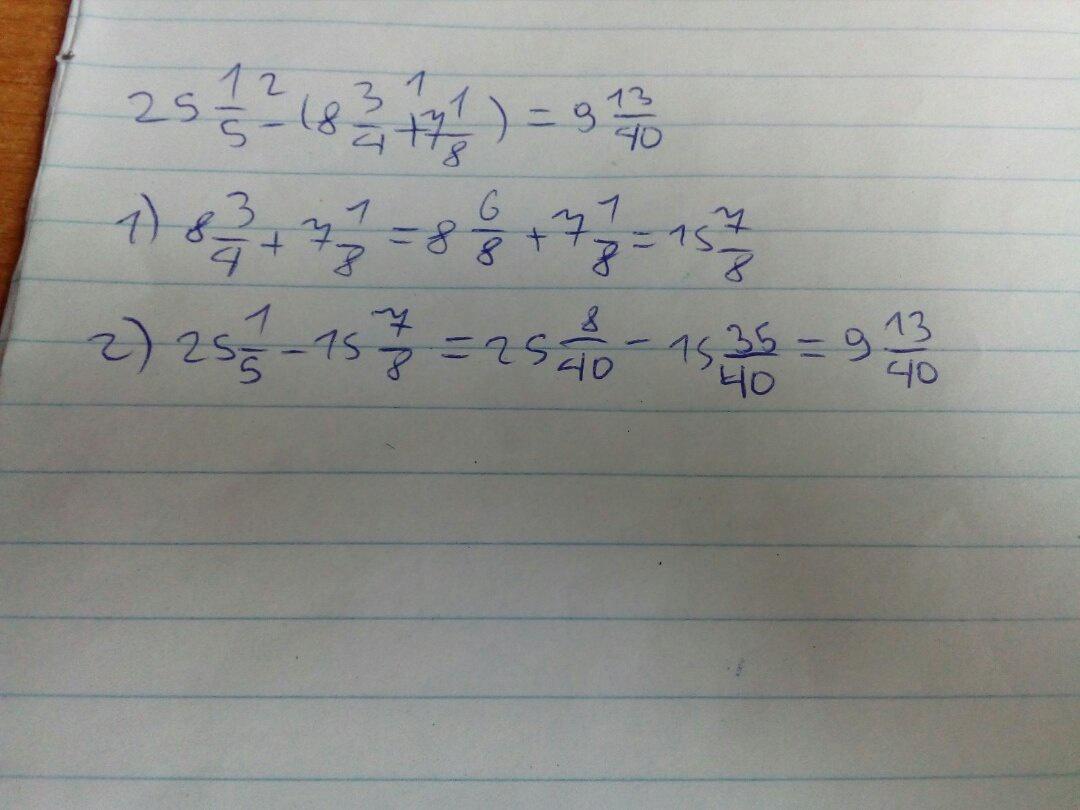 25 1/5 -² (8 3/4 +¹ 7 1/8) = 9 13/40
1) 8 3/4 + 7 1/8 = 8 6/8 + 7 1/8 = 15 7/8
2) 25 1/5 - 15 7/8 = 25 8/40 - 15 35/40 = 9 13/40